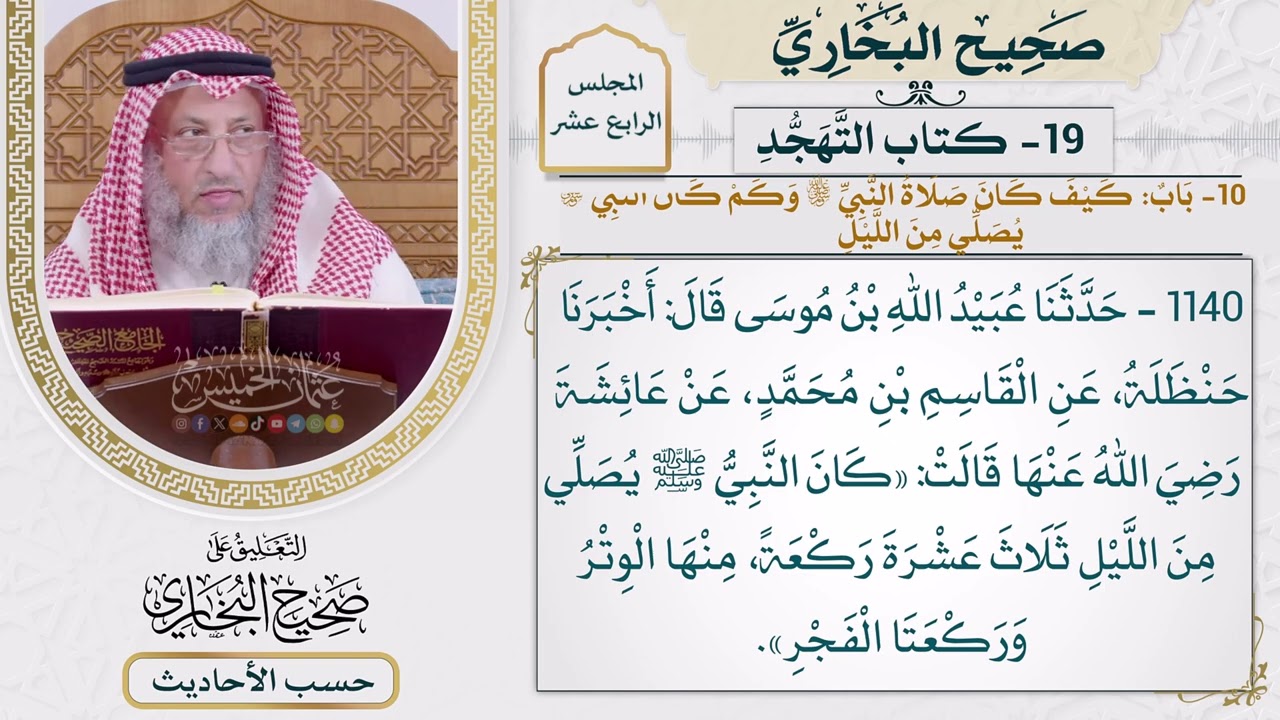 صَحِيح البُخَارِيِّ
المجلس
الرابع عشر
19- كتاب التَّهَجُّدِ
10- بَابٌ: كَيْفَ كَانَ صَلَاةُ النَّبِيِّ ﷺ وَكَمْ كَانَ النَّبِي ﷺ
يُصَلِّي مِنَ اللَّيْلِ
1140 - حَدَّثَنَا عُبَيْدُ اللهِ بْنُ مُوسَى قَالَ: أَخْبَرَنَا
حَنْظَلَةُ، عَنِ الْقَاسِمِ بْنِ مُحَمَّدٍ، عَنْ عَائِشَةَ
رَضِيَ اللهُ عَنْهَا قَالَتْ: «كَانَ النَّبِيُّ ﷺ يُصَلِّي
مِنَ اللَّيْلِ ثَلَاثَ عَشْرَةَ رَكْعَةً، مِنْهَا الْوِتْرُ
وَرَكْعَتَا الْفَجْرِ».
الجامع الصحيح
عثمان الخميس
التَّعْلِيقُ عَلَى
صَحِيحِ البُخَارِي
حسب الأحاديث